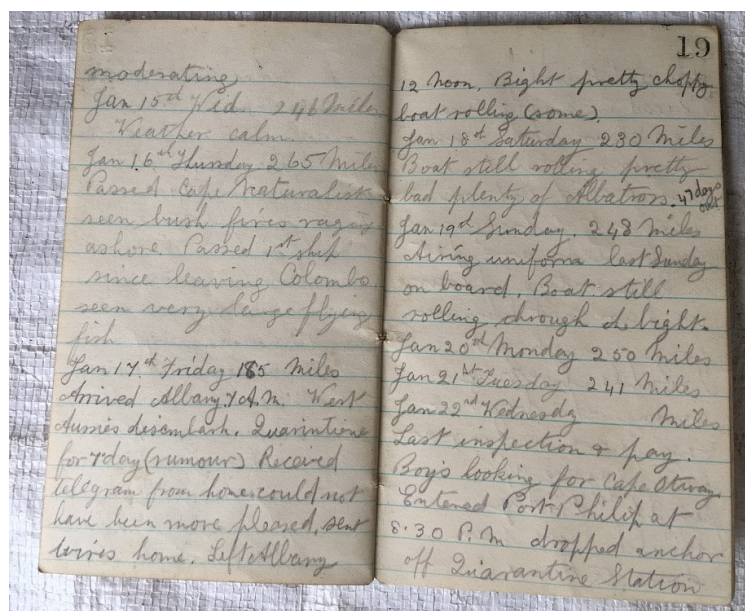 moderating
Jan 15th Wed. 246 Miles
Weather calm.
Jan 16th Thursday 265 Miles
Passed Cape Naturalist
seen bush fires raging
ashore. Passed 1st ship
since leaving Colombo
seen very large flying
fish
Jan 17th Friday 185 Miles
Arrived Albany 7 A.M. West
Aussies disembark. Quarintiene
for 7 day (rumour) Received
telegram from home could not
have been more pleased, sent
wires home. Left Albany
19
12 Noon. Bight pretty choppy
boat rolling (some).
Jan 18th Saturday 230 Miles
Boat still rolling pretty
bad plenty of Albatross. 47 days out
Jan 19th Sunday. 248 Miles
Airing uniform last Sunday
on board. Boat still
rolling through d. bight.
Jan 20th Monday 250 Miles
Jan 21st Tuesday 241 Miles
Jan 22nd Wednesdy Miles
Last inspection & pay.
Boys looking for Cape Otway
Entered Port Philip at
8.30 P.M dropped anchor
off Quarantine Station